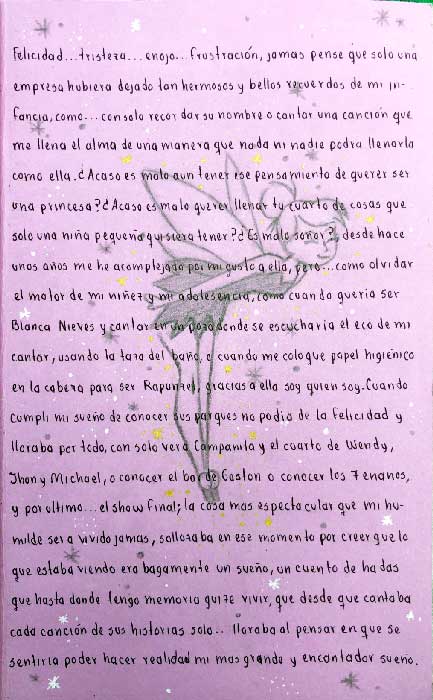 Felicidad...tristeza...enojo...frustración, jamas pense que solo una
empresa hubiera dejado tan hermosos y bellos recuerdos de mi in-
fancia, como...con solo recordar su nombre o cantar una canción que
me llena el alma de una manera que nada ni nadie podra llenarla
como ella.¿Acaso es malo aun tener ese pensamiento de querer ser
una princesa?¿Acaso es malo querer llenar tu cuarto de cosas que
solo una niña pequeña quisiera tener?¿Es malo soñar?, desde hace
unos años me he acomplejado por mi gusto a ella, pero...como olvidar
el motor de mi niñez y mi adolesencia, como cuando queria ser
Blanca Nieves y cantar en un pozo donde se escucharia el eco de mi
cantar, usando la taza del baño, o cuando me coloque papel higiénico
en la cabeza para ser Rapunzel, gracias a ella soy quien soy.Cuando
cumpli mi sueño de conocer sus parques no podia de la felicidad y
lloraba por todo, con solo ver a Campanita y el cuarto de Wendy,
Jhon y Michael, o conocer el bar de Gaston o conocer los 7 enanos,
y por ultimo...el show final; la cosa mas espectacular que mi hu-
milde ser a vivido jamas, sollosaba en ese momento por creer que lo
que estaba viendo era bagamente un sueño, un cuento de hadas
que hasta donde tengo memoria quize vivir, que desde que cantaba
cada canción de sus historias solo.. lloraba al pensar en que se
sentiria poder hacer realidad mi mas grande y encantador sueño.